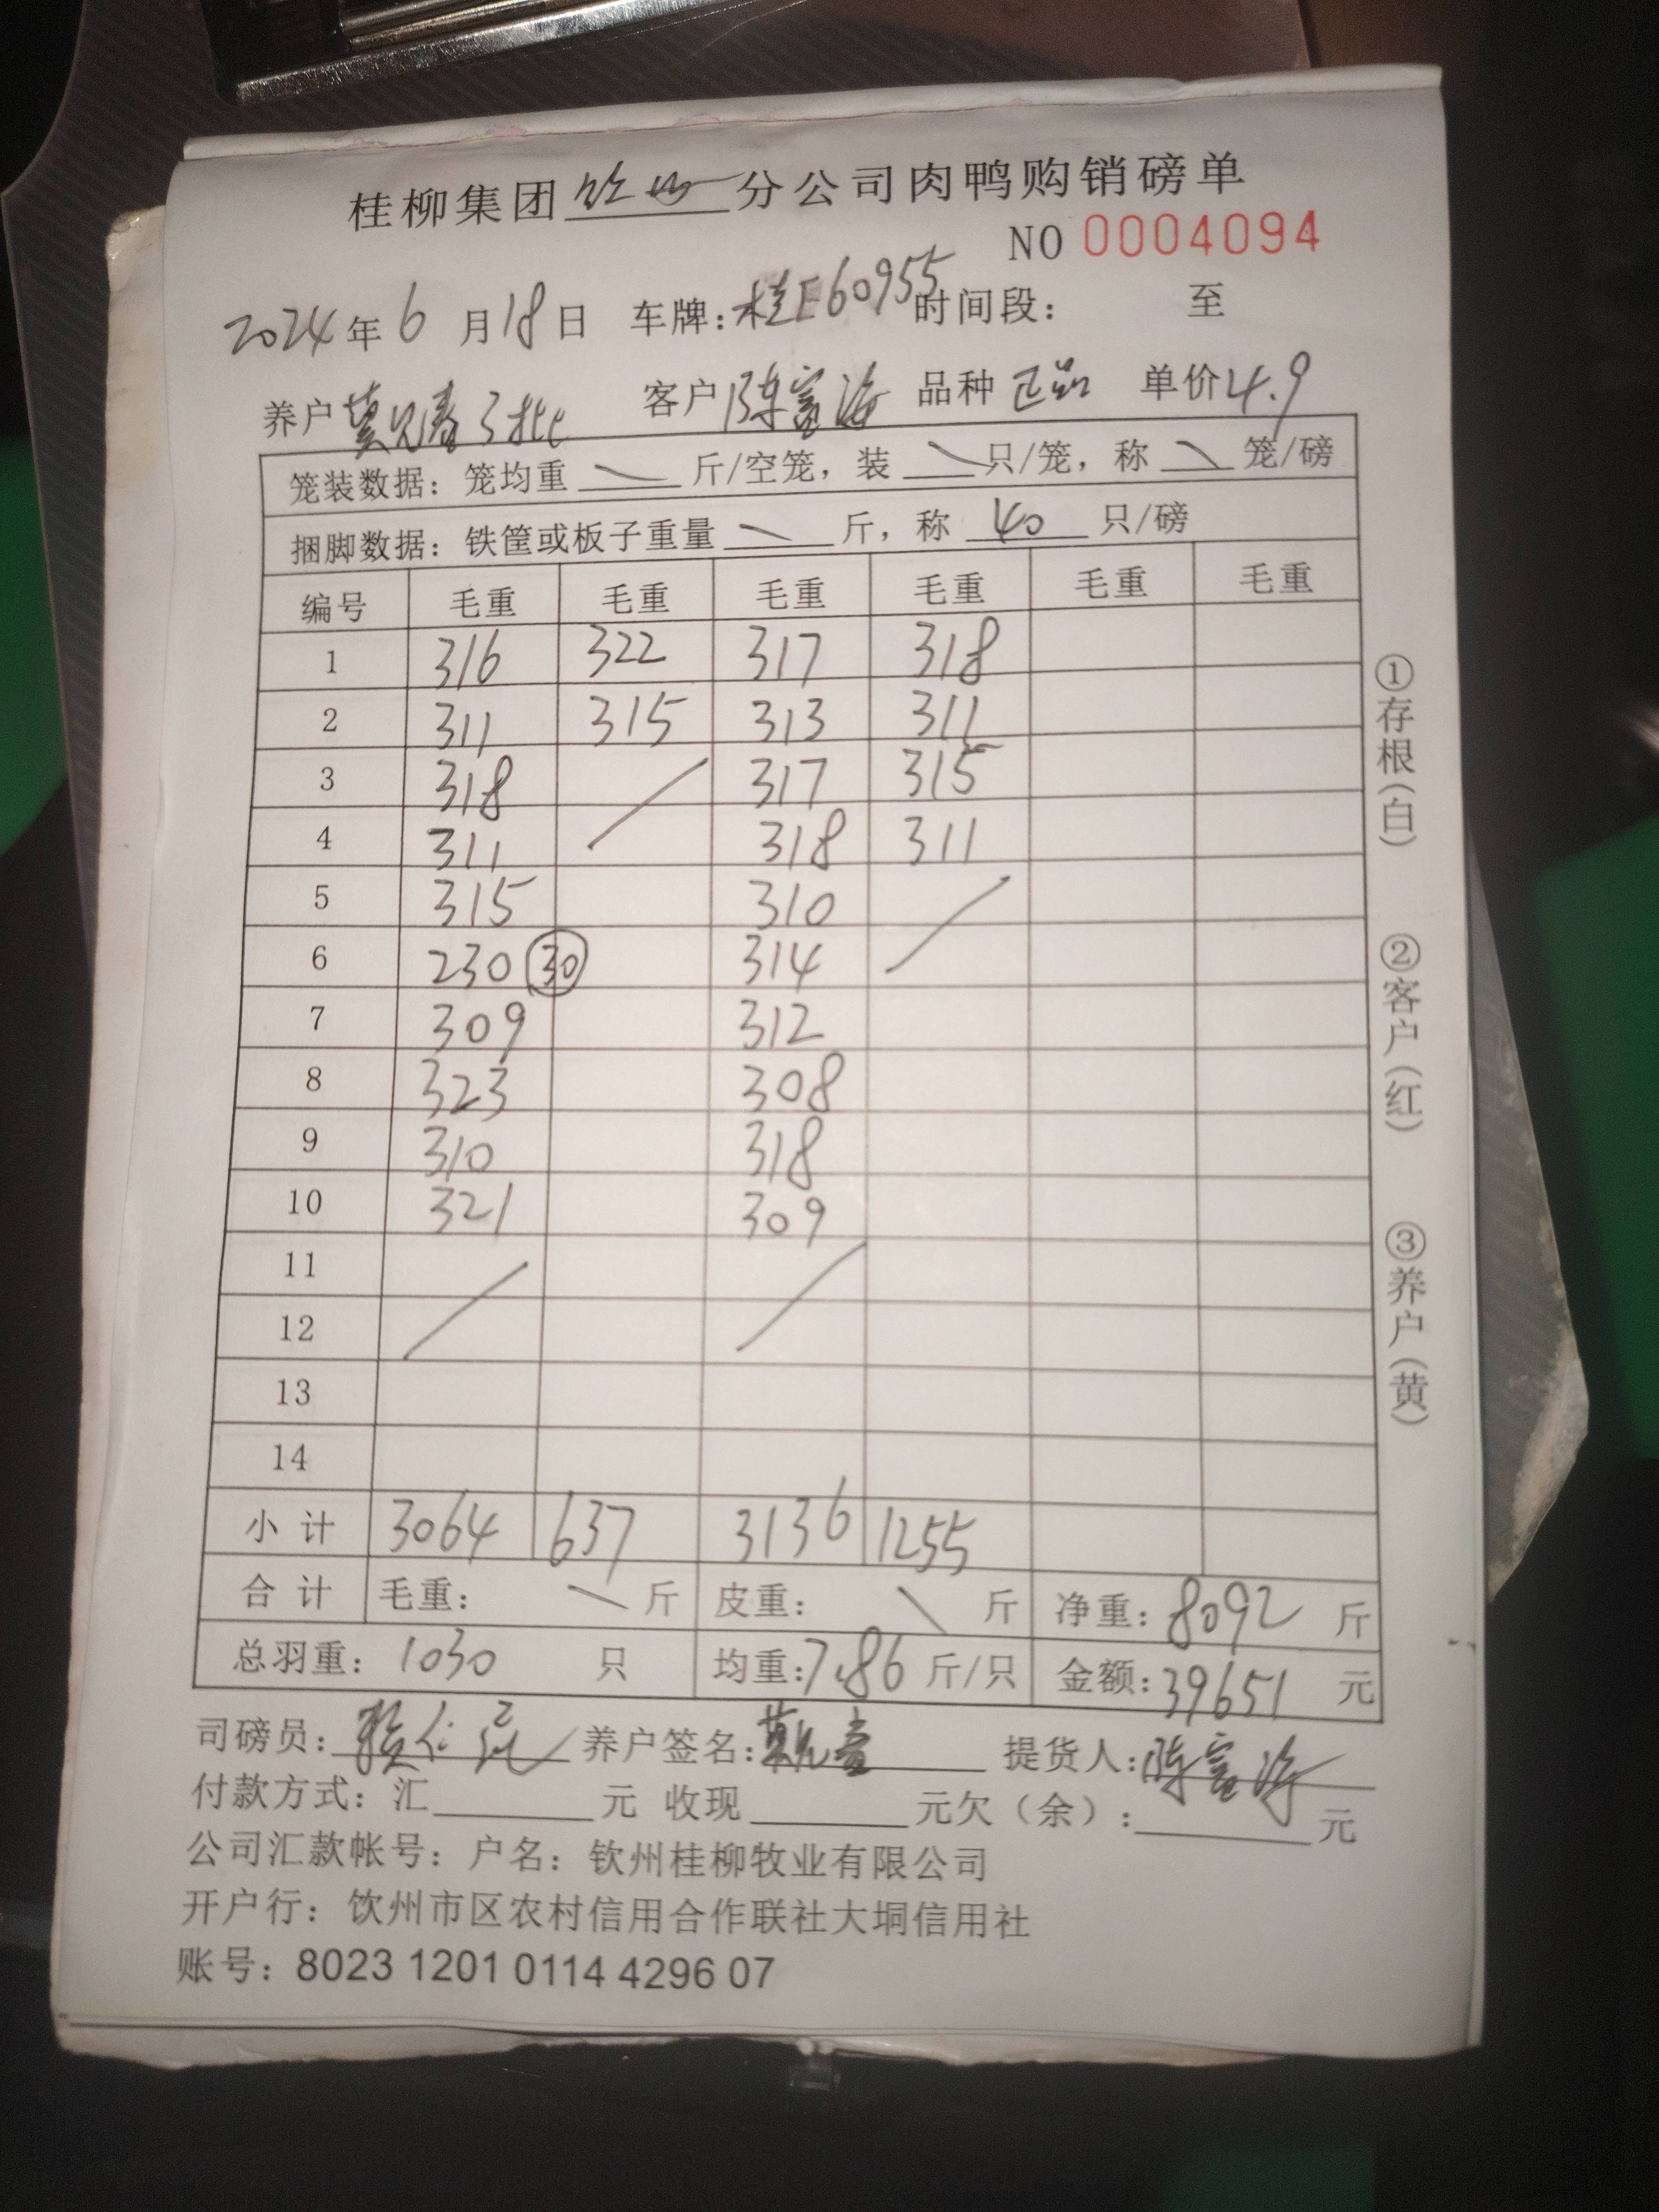 桂柳集团 分公司肉鸭购销磅单
NO 0004094
2024年6月18日 车牌:桂E60955 时间段: 至
养户 莫 春3批 客户 陈富海 品种 正品 单价4.9
笼装数据: 笼均重 \ 斤/空笼, 装 \ 只/笼, 称 \ 笼/磅
捆脚数据: 铁筐或板子重量 \ 斤, 称 40 只/磅
编号 毛重 毛重 毛重 毛重 毛重 毛重
1 316 322 317 318
2 311 315 313 311
3 318 / 317 315
4 311 318 311
5 315 310 /
6 230 30 314
7 309 312
8 323 308
9 310 318
10 321 309
11 / /
12
13
14
小计 3064 637 3136 1255
合计 毛重: \ 斤 皮重: \ 斤 净重: 8092 斤
总羽重: 1030 只 均重:7.86 斤/只 金额:39651 元
司磅员: 养户签名: 提货人:陈富海
付款方式: 汇 元 收现 元欠(余): 元
公司汇款帐号: 户名: 钦州桂柳牧业有限公司
开户行: 钦州市区农村信用合作联社大垌信用社
账号: 8023 1201 0114 4296 07
①存根(白)
②客户(红)
③养户(黄)